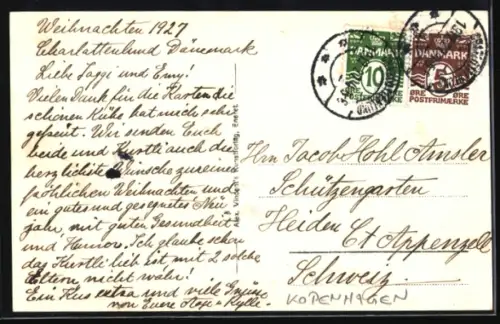 Weihnachten 1927
Charlottenlund Dänemark
Liebe Jaggi und Emy!
Vielen Dank für die Karten die
schönen Kühe hat mich sehr
gefreut. Wir senden Euch
beide und Kurtli auch die
herzlichste Wünsche zu einer
fröhlichen Weihnachten und
ein gutes und gesegnetes Neu
jahr, mit guten Gesundheit
und Humor. Ich glaube schon
das Kurtli lieb ist mit 2 solche
Eltern nicht wahr!
Ein Kus extra und viele Grüsse
von Euere
DANMARK
10
POSTFRIMÆRKE
DANMARK
5
ØRE ØRE
POSTFRIMÆRKE
Hrn Jacob Hohl Amsler
Schützengarten
Heiden Ct Appenzell
Schweiz
KOPENHAGEN